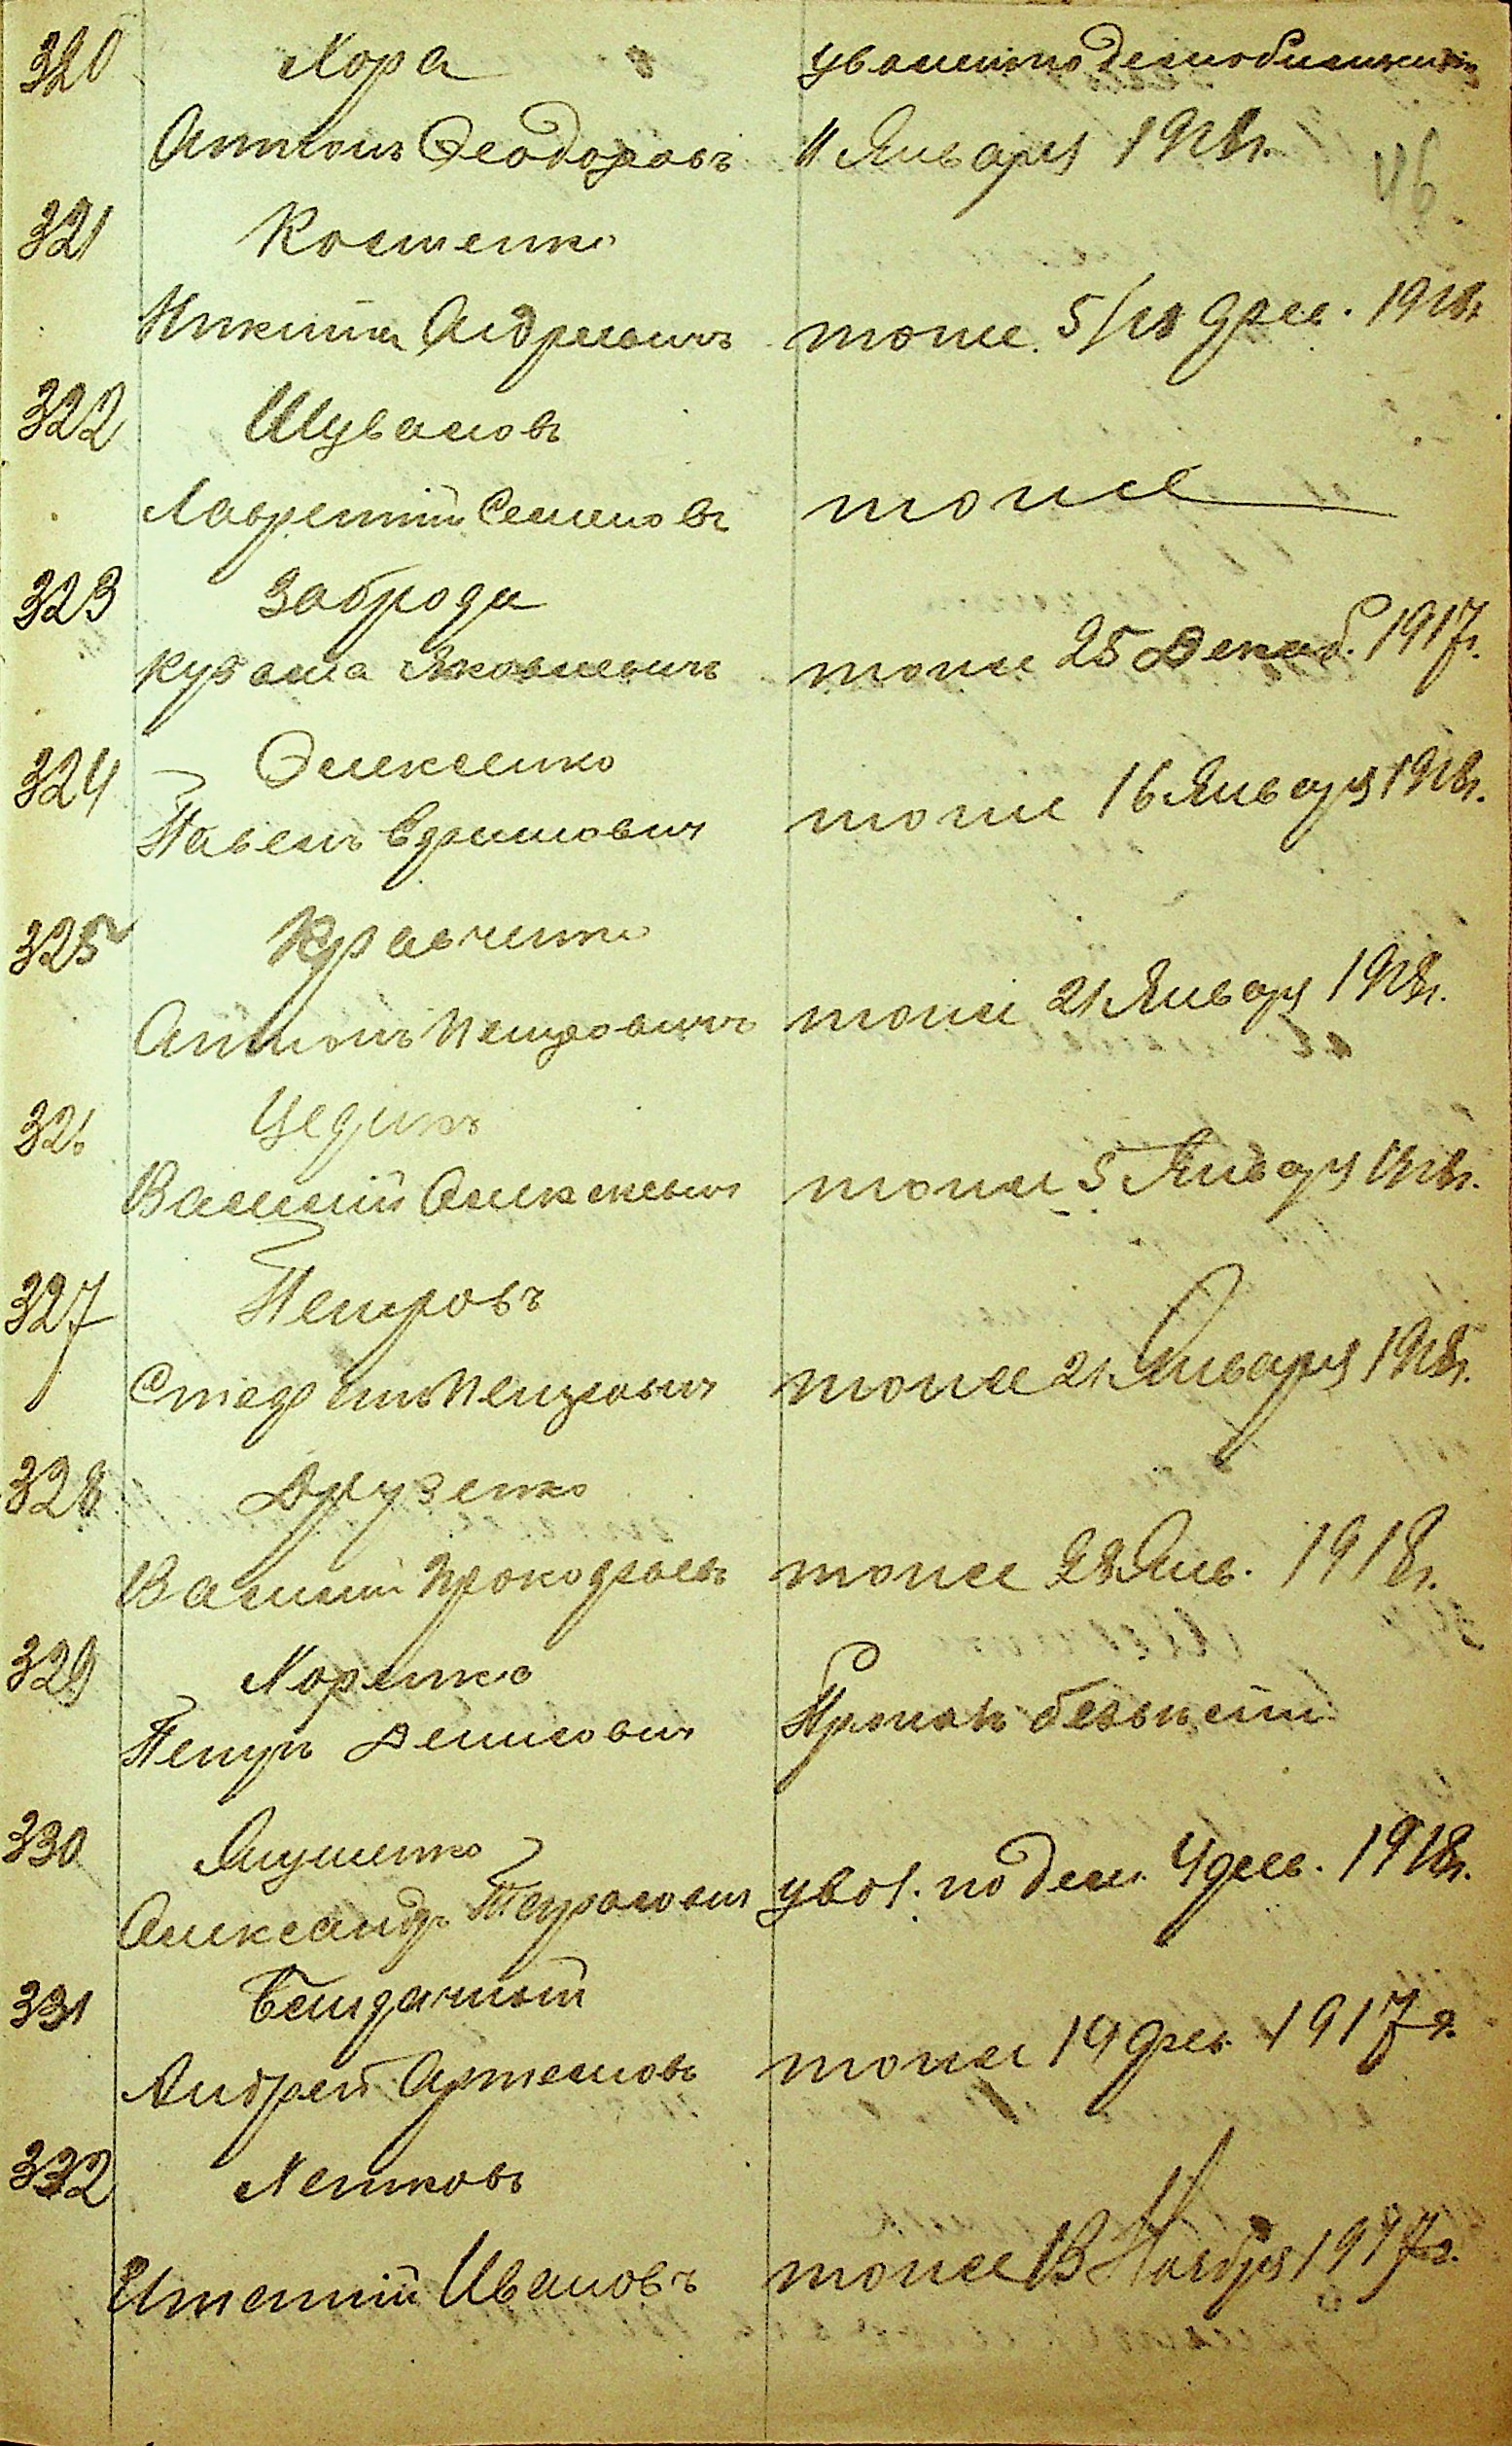 320 Хора уволенъ по демобилизаціи
Антонъ Ѳеодоровъ 11 Января 1918г.
46
321 Костенко
Никита Андреевичъ тоже 5/18 фев. 1918г.
322 Шуваловъ
Лаврентій Семеновъ тоже
323 Заброда
Яковлевичъ тоже 25 Декаб. 1917г.
324 Олексенко
Павелъ Ефимович тоже 16 Января 1918г.
325 Кравченко
Антонъ Петровичъ тоже 21 Января 1918г.
326 Цедикъ
Василій Алексеевич тоже 5 Января 1918г.
327 Петровъ
Стефанъ Петрович тоже 21 Января 1918г.
328 Друзенко
Василий Прокофьевъ тоже 28 Янв. 1918г.
329 Коренко
Петръ Денисович Пропалъ безъ вѣсти
330 Якушенко
Александръ Тарасович увол. по дем. 4 фев. 1918г.
331
Андрей Артемовъ тоже 19 фев. 1917г.
332 Летковъ
Игнатій Ивановъ тоже 13 Ноября 1917г.